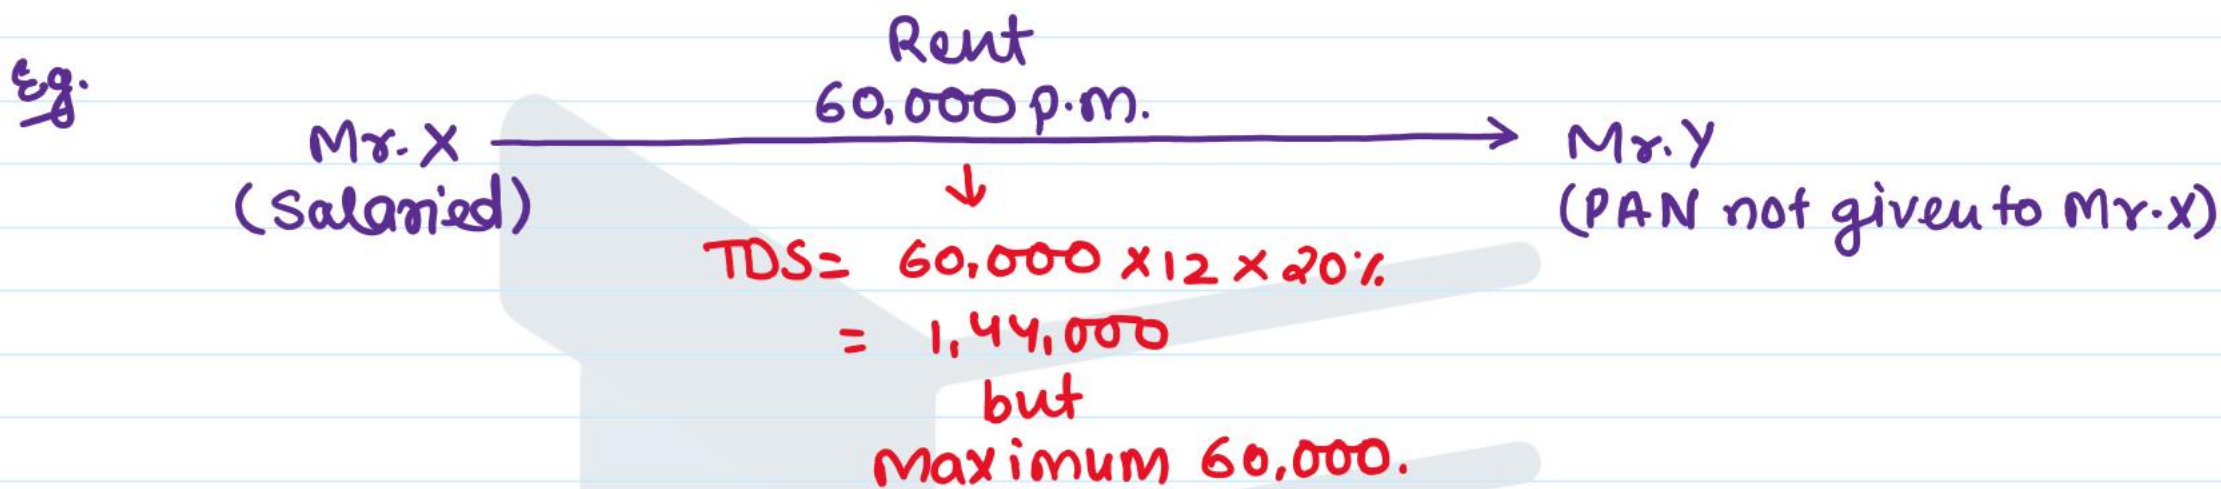 Eg.
Rent
60,000 p.m.
Mr. X
Mr. Y
(Salaried)
(PAN not given to Mr. X)
TDS = 60,000 × 12 × 20%
= 1,44,000
but
Maximum 60,000.